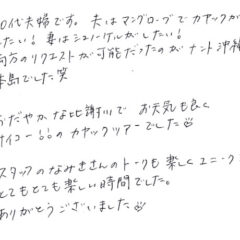 0代夫婦です。夫はマングローブでカヤックが
したい!妻はシュノーケルがしたい!
両方のリクエストが可能だったのがナント沖縄
本島でした笑
おだやかな比謝川で お天気も良く
サイコー!!のカヤックツアーでした
スタッフのなみきさんのトークも楽しくユニーク
とてもとても楽しい時間でした。
ありがとうございました